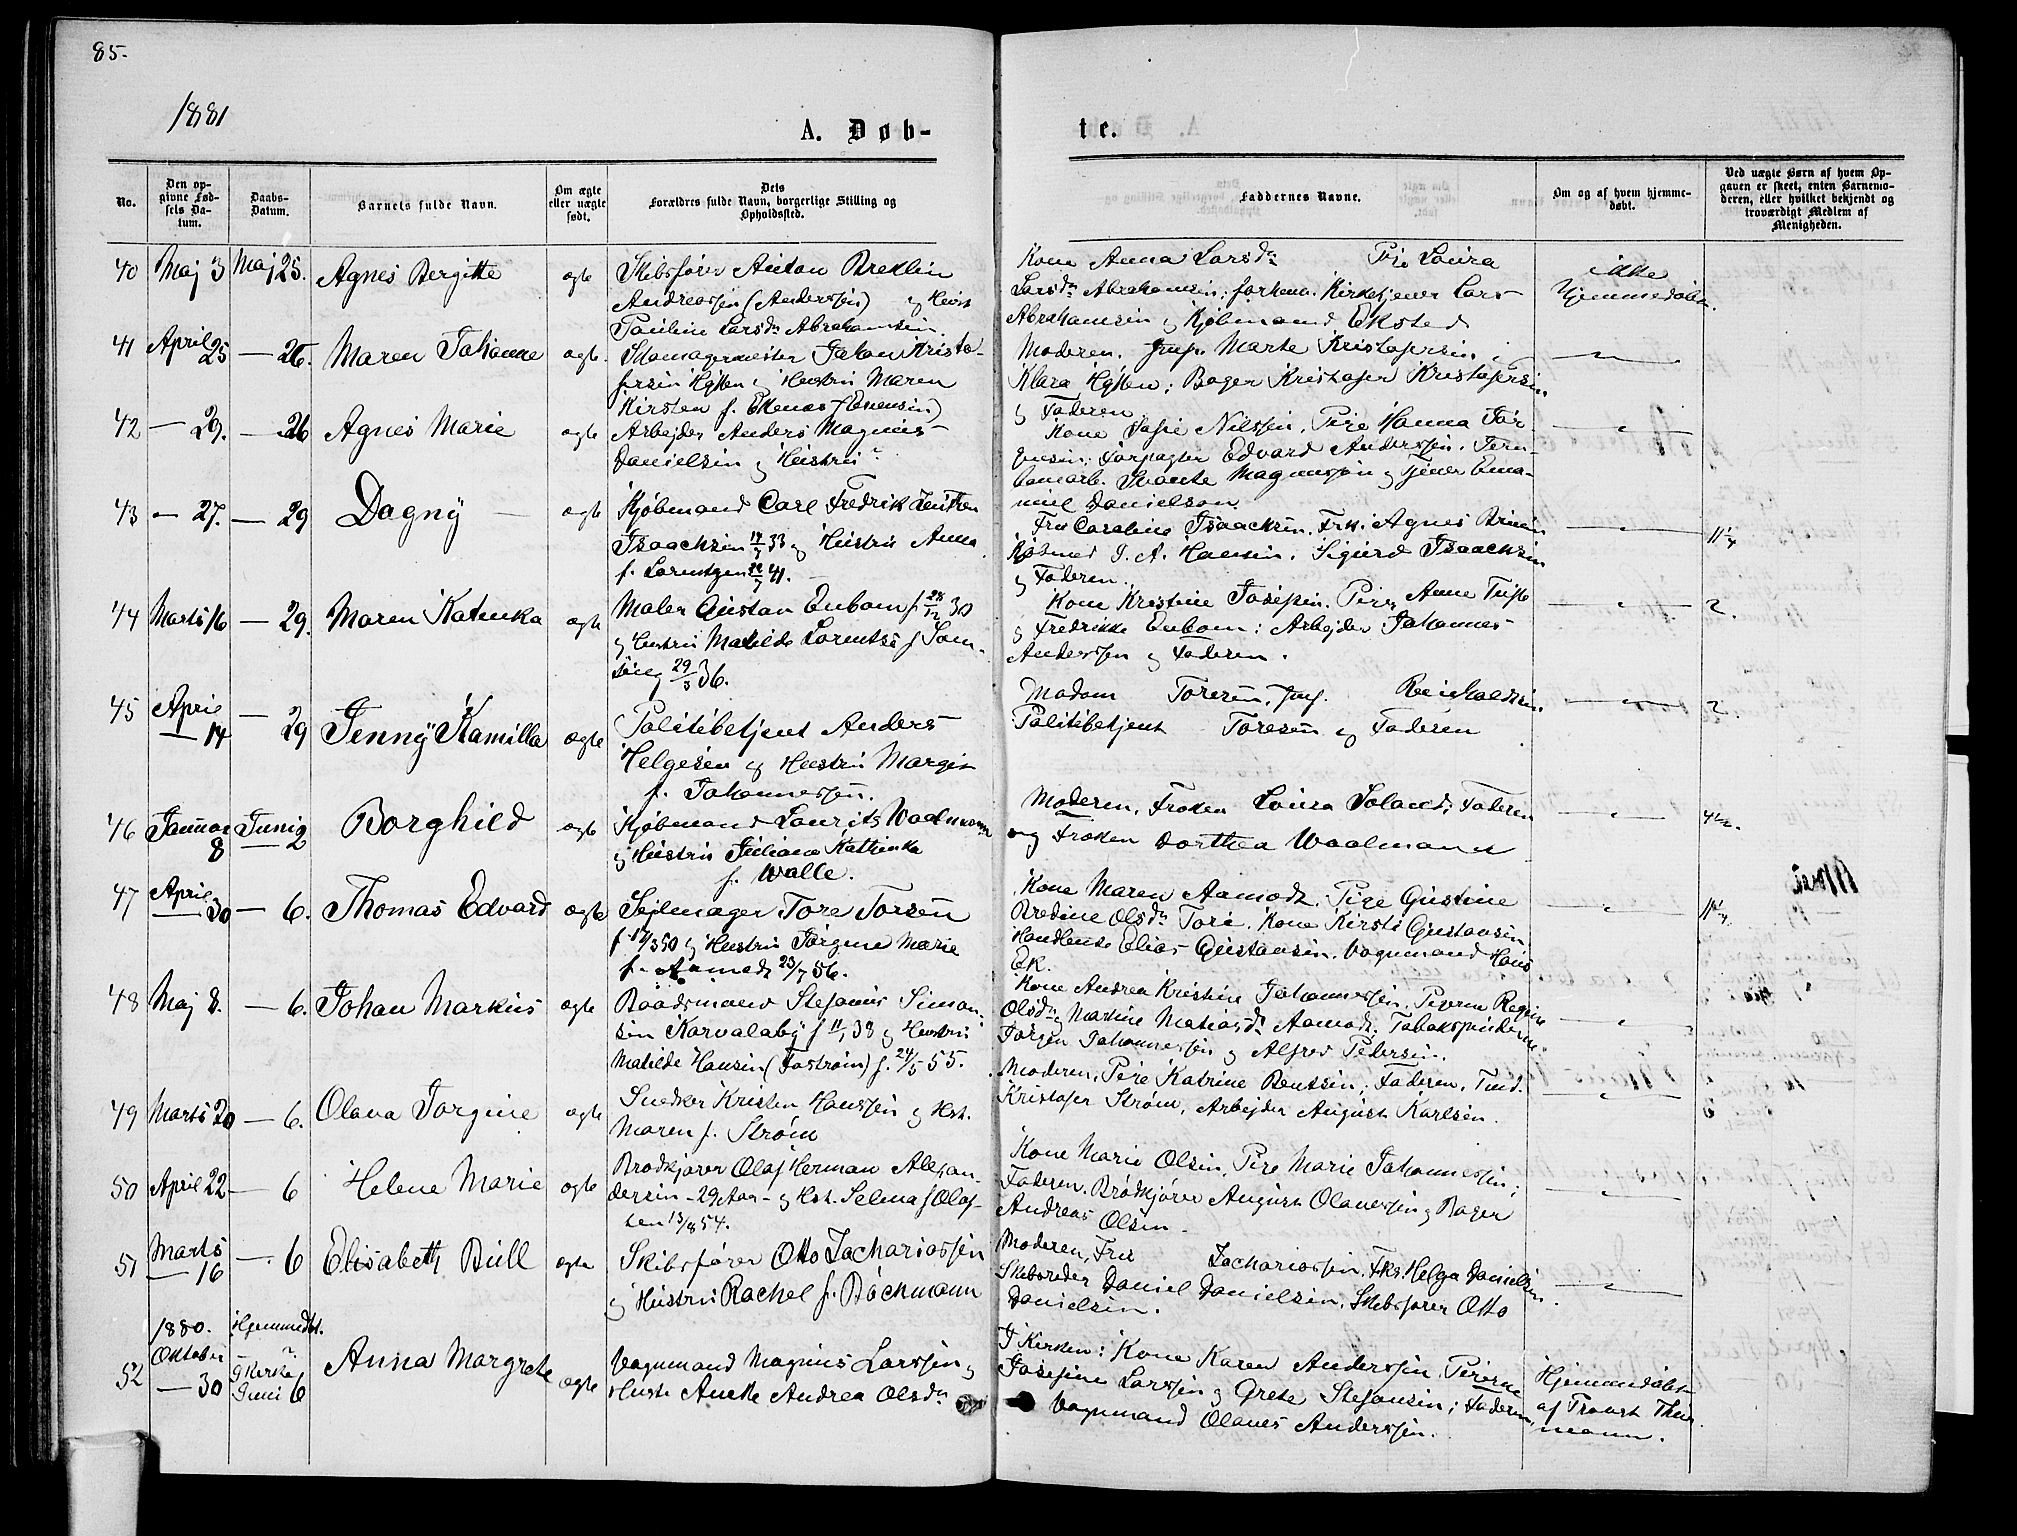 85.
1881
A. Døb-
te.
No.
Den op-
givne Fød-
sels Da-
tum.
Daabs-
Datum.
Barnets fulde Navn.
Om ægte
eller uægte
født.
Dets
Forældres fulde Navn, borgerlige Stilling og
Opholdssted.
Faddernes Navne.
Om og af hvem hjemme-
døbt.
Ved uægte Børn af hvem Op-
gaven er skeet, enten Barnemo-
deren, eller hvilket bekjendt og
troværdigt Medlem af
Menigheden.
40 Maj 3 Maj 25. Agnes Bergitte ægte Skibsfører Anton Bredlin
Andreassen (Anderssen) og Hustr
Pauline Larsdr Abrahamsen.
Kone Anna Larsdr Pige Loura
Larsdr Abrahamsen; forhenv. Kirketjener Lars
Abrahamsen og Kjøbmand Eksted
ikke
hjemmedøbt.
41 April 25 — 26. Maren Johanne ægte. Skomagermester Johan Kristo-
fersen Hysten og Hustru Maren
Kirsten f. Ekenæs (Evensen)
Moderen. Jmfr. Marte Kristofersen i
Klara Hysten; Bager Kristofer Kristofersen
og Faderen
— " —
42 — 29. — 26 Agnes Marie ægte Arbejder Anders Magnus
Danielsen og Hustru
Kone Sofie Nilssen, Pige Hanna Jør-
gensen; Forpagter Edvard Anderssen. Jern-
banearb. Svante Magnussen og Tjener Ema-
nuel Danielson.
— " —
43 — 27. — 29 Dagny — ægte Kjøbmand Carl Fredrik
Isaachsen 33 og Hustru Anna
f. Lorentzen 41.
Fru Caroline Isaachsen, Frk. Agnes
Kjøbmd J. A. Hansen. Sigurd Isaachsen
og Faderen.
— " —
44 Marts 16 — 29. Maren Katinka ægte Maler Gustav Enbom f 28/12 30
og Hustru Matilde Lorentse f Sam-
29/3 36.
Kone Kristine Josefsen. Piger Anne
og Fredrikke Enbom; Arbejder Johannes
Anderssen og Faderen.
— " — 2.
45 April
— 14 — 29 Jenny Kamilla ægte Politibetjent Anders
Helgesen og Hustru Margit
f. Johannessen.
Madam Toresen, Jmf. Reinholdsen
Politibetjent Toresen og Faderen
— " — 2.
46 Januar
8 Juni
2 Borghild ægte Kjøbmand Laurits Waalmann
og Hustru Juliane Kathinka
f. Walle.
Moderen, Frøken Loura Soland; Faderen
og Frøken Dorthea Waalmann
— " — 4½.
47 April
— 30 — 6. Thomas Edvard ægte Sejlmager Tore Torsen
f 17/3 50 og Hustru Jørgine Marie
f. Aamodt 23/7 56.
Kone Maren Aamodt, Pige Gustine
Bredine Olsdr Tore. Kone Kirsti Gustavsen
Handlende Elias Gustavsen, Vognmand Hans
Ek.
— " —
48 Maj 8. — 6. Johan Markus ægte Baadsmand Stefanus Simon-
sen Korvalaby f 11/1 38 og Hustru
Matilde Hansen (Fostrøm) f. 24/5 55.
Kone Andrea Kristine Johannessen. Pigerne Regine
Olsdr og Martine Matiasdr Aamodt. Tobakspinderne
Jørgen Johannessen og Alfred Pedersen.
— " —
49 Marts 20 — 6. Olava Jorgine ægte Snedker Kristen Hanssen og Hst.
Maren f. Strøm
Moderen, Pige Katrine Bentsen; Faderen, Tmd.
Kristofer Strøm, Arbejder August Karlsen.
— " —
50 April 22 — 6 Helene Marie ægte Brødkjører Olaf Herman Alexan-
dersen – 29 Aar – og Hst. Selma f Olaf-
sen 13/8 54.
Kone Marie Olsen, Pige Marie Johannessen;
Faderen. Brødkjører August Olavessen og Bager
Andreas Olsen.
— " —
51 Marts
— 16 — 6 Elisabeth Bull ægte Skibsfører Otto Zachariassen
og Hustru Rachel f. Bøckmann
Moderen, Fru Zachariassen, Frk. Helga Danielsen
Skibsreder Daniel Danielsen, Skibsfører Otto
Danielsen.
— " —
52 1880.
Oktober
— 30 Hjemmedbt.
I Kirke
Juni 6 Anna Margrete ægte Vognmand Magnus Larssen og
Hustr Anette Andrea Olsdr
I Kirken: Kone Karen Anderssen, Pigerne
Josefine Larssen og Grete Stefansen; Faderen,
Vognmand Olaves Anderssen.
Hjemmedøbt
af Provst Thur-
mann.